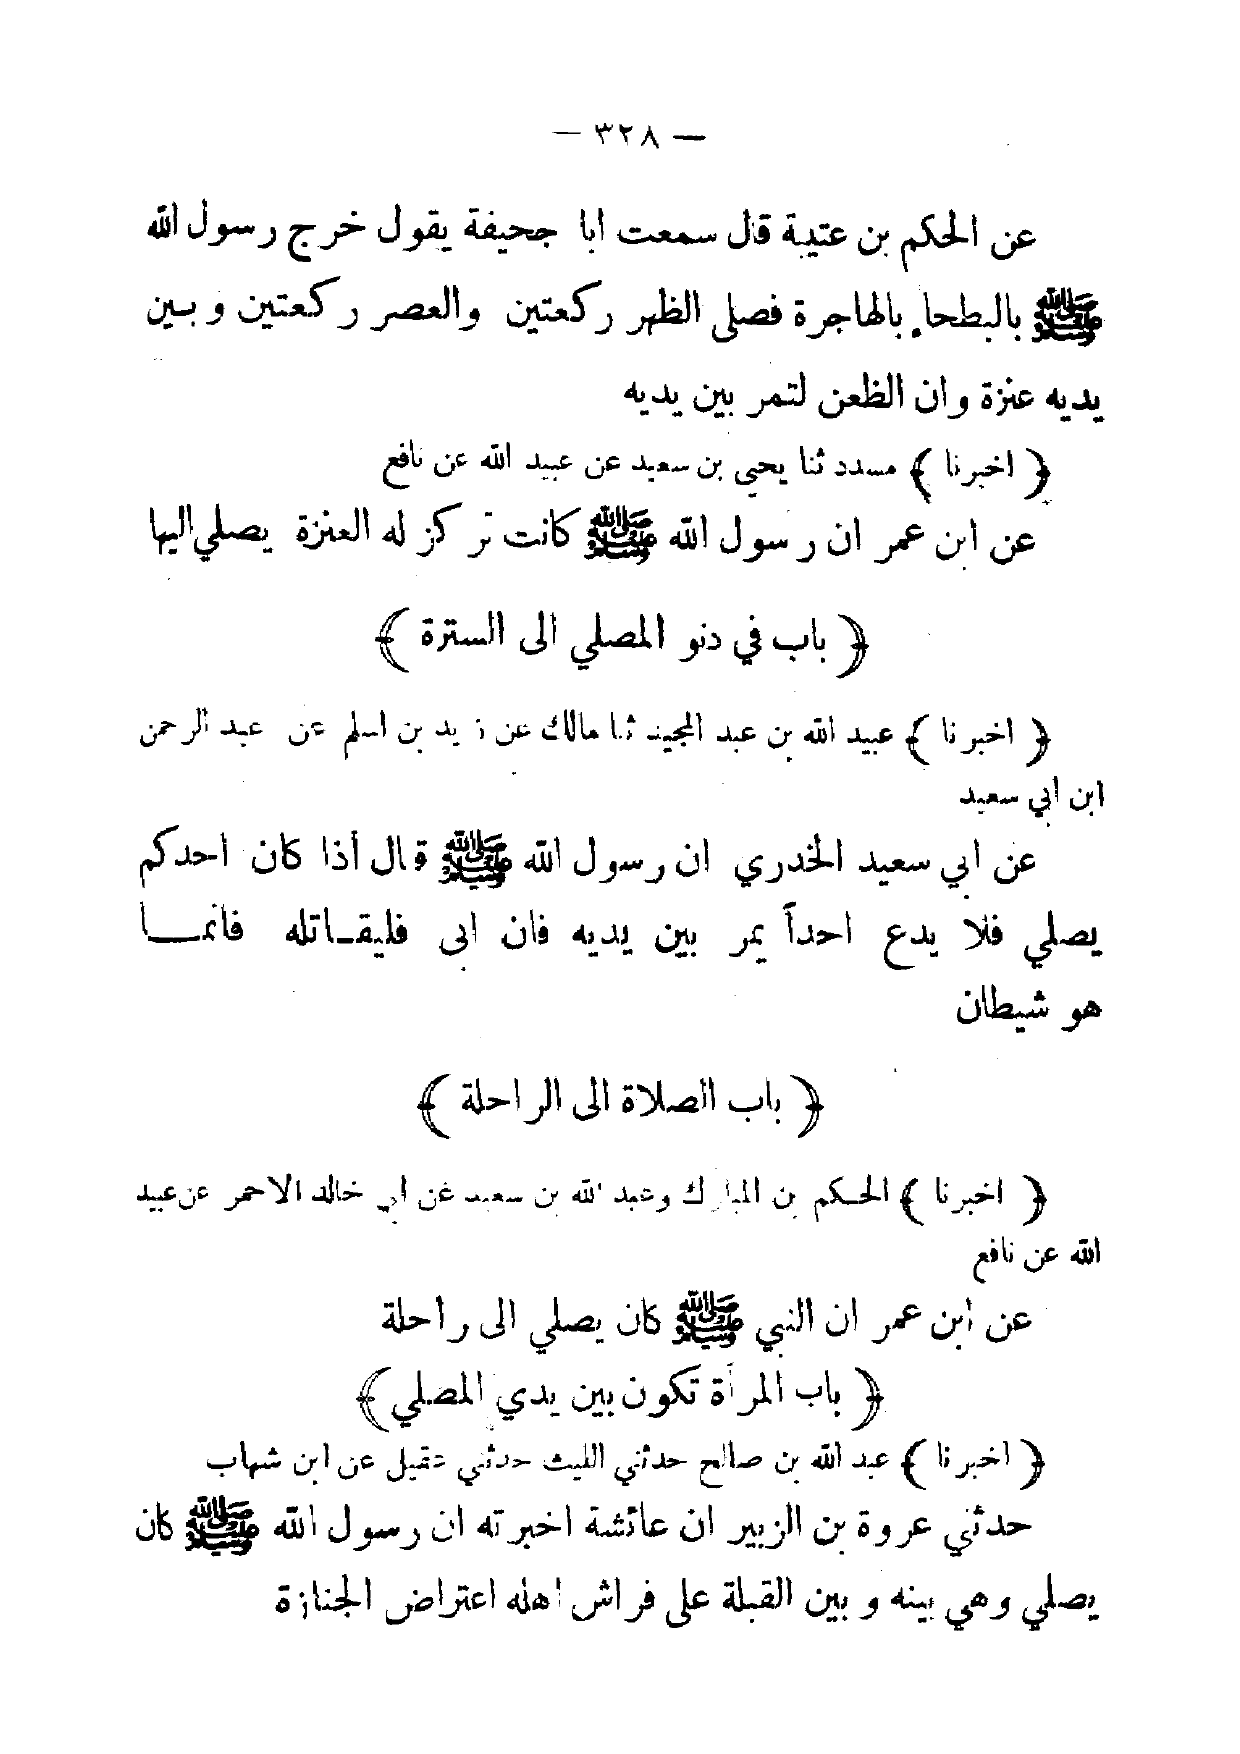 — ٣٢٨ —
عن الحكم بن عتيبة قال سمعت ابا جحيفة يقول خرج رسول الله
ﷺ بالبطحاء بالهاجرة فصلى الظهر ركعتين والعصر ركعتين وبين
يديه عنزة وان الظعن لتمر بين يديه
﴿ اخبرنا ﴾ مسدد ثنا يحيى بن سعيد عن عبيد الله عن نافع
عن ابن عمر ان رسول الله ﷺ كانت تركز له العنزة يصلي اليها
﴿ باب في دنو المصلي الى السترة ﴾
﴿ اخبرنا ﴾ عبيد الله بن عبد المجيد ثنا مالك عن زيد بن اسلم عن عبد الرحمن
ابن ابي سعيد
عن ابي سعيد الخدري ان رسول الله ﷺ قال أذا كان احدكم
يصلي فلا يدع احداً يمر بين يديه فان ابى فليقاتله فانما
هو شيطان
﴿ باب الصلاة الى الراحلة ﴾
﴿ اخبرنا ﴾ الحكم بن المبارك وعبد الله بن سعيد عن ابي خالد الاحمر عن عبيد
الله عن نافع
عن ابن عمر ان النبي ﷺ كان يصلي الى راحلة
﴿ باب المرأة تكون بين يدي المصلي ﴾
﴿ اخبرنا ﴾ عبد الله بن صالح حدثني الليث حدثني عقيل عن ابن شهاب
حدثني عروة بن الزبير ان عائشة اخبرته ان رسول الله ﷺ كان
يصلي وهي بينه وبين القبلة على فراش اهله اعتراض الجنازة